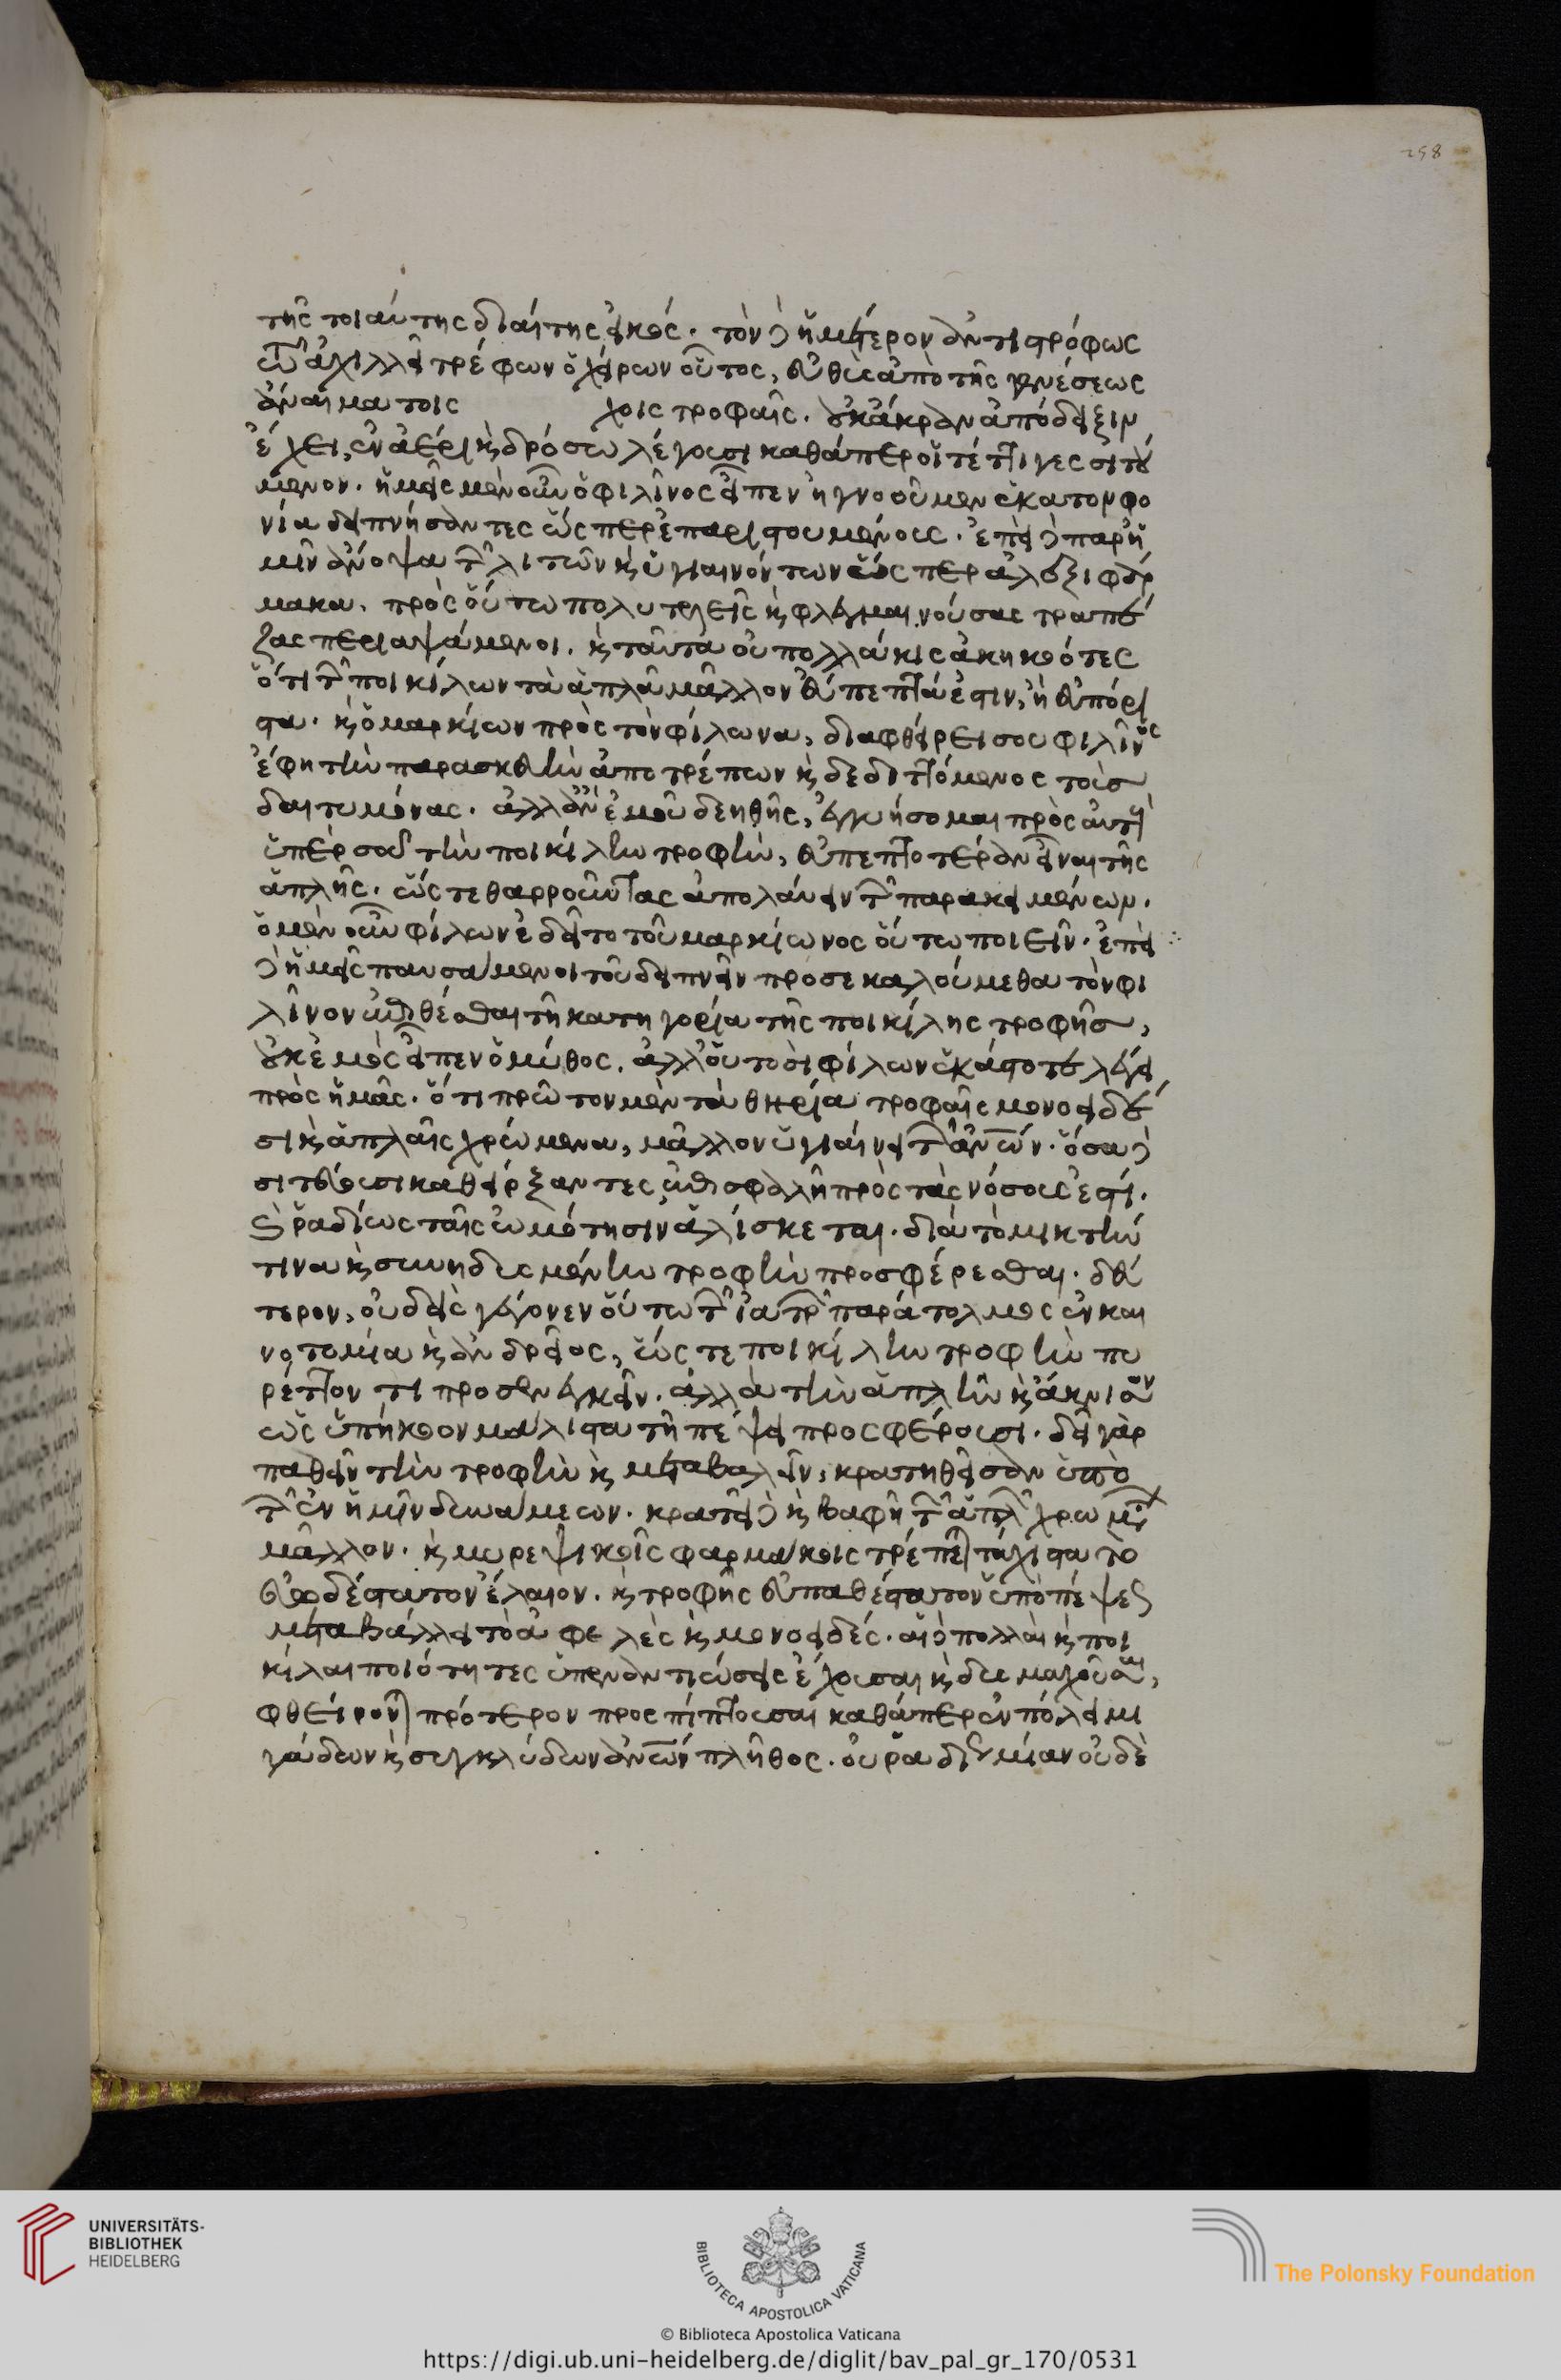 258
τῆς τοιαύτης διαίτης εἰκός. τὸν δὲ ἡμέτερον ἀντιστρόφως
τῷ ἀχιλλεῖ τρέφων ὁ χείρων οὗτος, εὐθὺς ἀπὸ τῆς γενέσεως
ἀναίματοις χοις τροφαῖς. οὐκ ἄκραν ἀπόδειξιν
ἔχει, ἐν ἀέρι ϗ δρόσω λέγουσι καθάπερ οἱ τέττιγες σιτού
μενον. ἡμεῖς μὲν οὖν ὁ φιλῖνος εἶπεν ἠγνοοῦμεν ἑκατομφο
νία δειπνήσαντες ὥσπερ ἐπ ἀριστουμένους. ἐπεὶ δὲ παρ' ἡ
μῖν ἄνοψα τῶν λιτῶν ϗ ὑγιαινόντων ὥσπερ ἀλεξιφάρ
μακα. πρὸς οὕτω πολυτελεῖς ϗ φλεγμαινούσας τραπέ
ζας περιαψάμενοι. ϗ ταῦτα οὐ πολλάκις ἀκηκοότες
ὅτι τῶν ποικίλων τὰ ἁπλᾶ μᾶλλον εὔπεπτά ἐστιν, ἢ εὐπόρι
στα. ϗ ὁ μαρκίων πρὸς τὸν φίλωνα, διαφθείρει σου φιλῖνος
ἔφη τὴν παρασκευὴν ἀποτρέπων ϗ δεδιττόμενος τοὺσ
δαιτυμόνας. ἀλλ' ἂν ἐμοῦ δεηθῆς, ἐγγυήσομαι πρὸς αὐτοὺς
ὑπὲρ σοῦ τὴν ποικίλην τροφὴν, εὐπεπτοτέραν εἶναι τῆς
ἁπλῆς. ὥστε θαρροῦντας ἀπολαύειν τῶν παρακειμένων.
ὁ μὲν οὖν φίλων ἐδεῖτο τοῦ μαρκίωνος οὕτω ποιεῖν. ἐπεὶ
δὲ ἡμεῖς παυσάμενοι τοῦ δειπνεῖν προσεκαλούμεθα τὸν φι
λῖνον ἐπιθέσθαι τῆ κατηγορία τῆς ποικίλης τροφῆσ,
οὐκ ἐμὸς εἶπεν ὁ μῦθος. ἀλλ' οὑτοσὶ φίλων ἑκάστοτε λέγει
πρὸς ἡμᾶς. ὅτι πρῶτον μὲν τὰ θηρία τροφαῖς μονοειδέ
σι ϗ ἁπλαῖς χρώμενα, μᾶλλον ὑγιαίνει τῶν ἀνων. ὅσα δὲ
σιτεύουσι καθείρξαντες ἐπισφαλῆ πρὸς τὰς νόσους ἐστί.
ϗ ῥαδίως ταῖς ὠμότησιν ἁλίσκεται. διὰ τὸ μικτήν
τινα ϗ συνηδυσμένην τροφὴν προσφέρεσθαι. δεύ
τερον, οὐδεὶς γέγονεν οὕτω τῶν ἰατρῶν παράτολμος ἐν και
νοτομία ϗ ἀνδρεῖος, ὥστε ποικίλην τροφὴν πυ
ρέττοντι προσενεγκεῖν. ἀλλὰ τὴν ἁπλῆν ϗ ἄκνισον
ὡς ὑπήκοον μάλιστα τῆ πέψει προσφέρουσι. δεῖ γὰρ
παθεῖν τὴν τροφὴν ϗ μεταβαλεῖν, κρατηθεῖσαν ὑπὸ
τῶν ἐν ἡμῖν δυνάμεων. κρατεῖ δὲ ϗ βαφὴ τῶν ἁπλῶν χρωμάτων
μᾶλλον. ϗ μυρεψικοῖς φαρμάκοις τρέπεται τάχιστα τὸ
εὐωδέστατον ἔλαιον. ϗ τροφῆς εὐπαθέστατον ὑπὸ πέψεως
μεταβάλλει τὸ ἀφελὲς ϗ μονοειδές. αἱ δὲ πολλαὶ ϗ ποι
κίλαι ποιότητες ὑπεναντιώσεις ἔχουσαι ϗ δυσμαχοῦσαι,
φθείρονται πρότερον προσπίπτουσαι καθάπερ ἐν πόλει μι
γάδων ϗ συγκλύδων ἀνων πλῆθος. οὐ ῥαδίως μίαν οὐδὲ
UNIVERSITÄTS-
BIBLIOTHEK
HEIDELBERG
BIBLIOTECA APOSTOLICA VATICANA
The Polonsky Foundation
© Biblioteca Apostolica Vaticana
https://digi.ub.uni-heidelberg.de/diglit/bav_pal_gr_170/0531